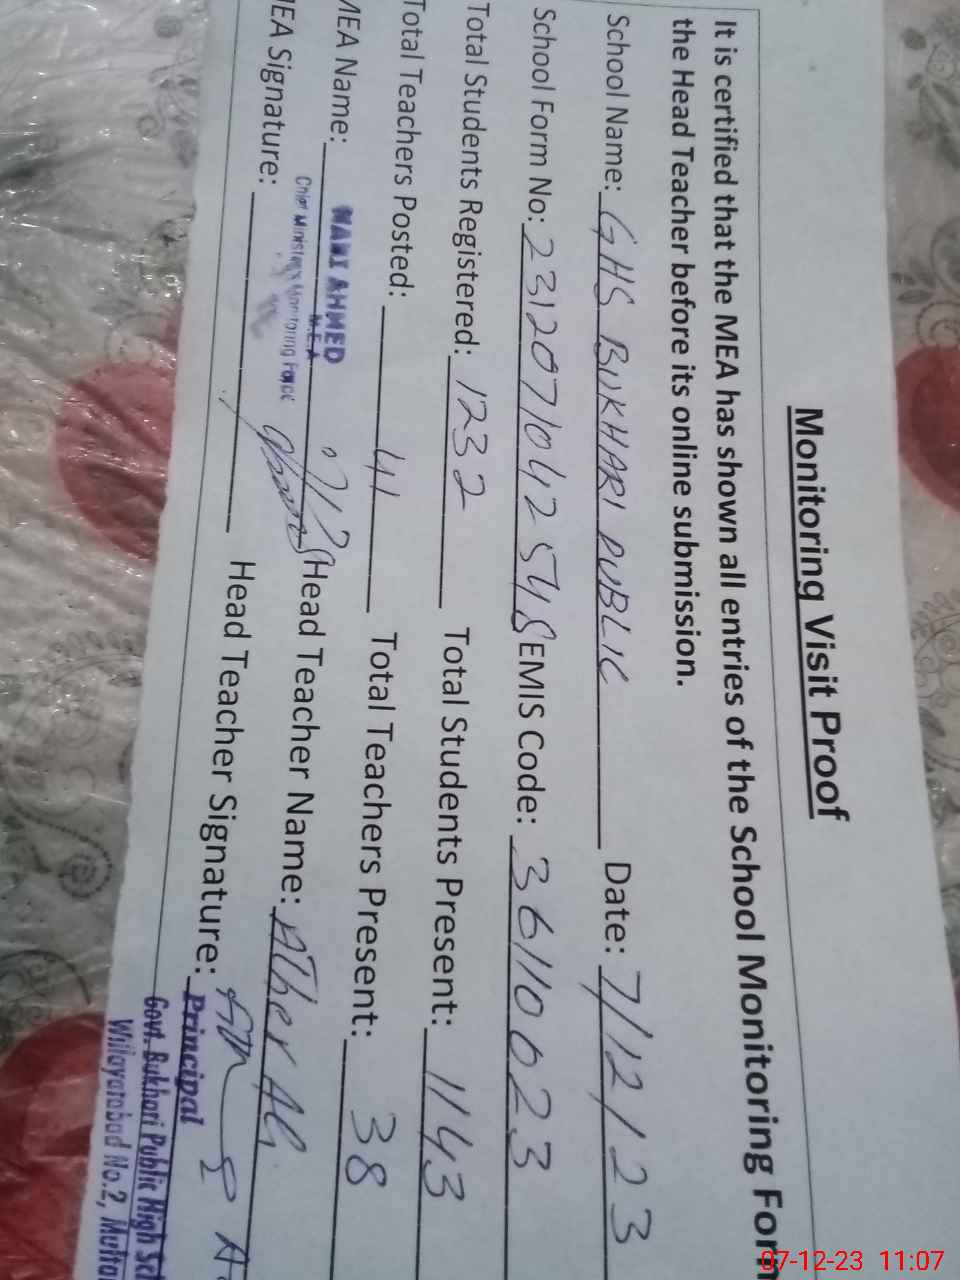 Monitoring Visit Proof
It is certified that the MEA has shown all entries of the School Monitoring Form
the Head Teacher before its online submission.
School Name: GHS BUKHARI PUBLIC Date: 7/12/23
School Form No: EMIS Code: 36110023
Total Students Registered: 1232 Total Students Present: 1143
Total Teachers Posted: 41 Total Teachers Present: 38
MEA Name: AHMED Head Teacher Name: ATher Ali
M.E.A
Chief Minister's Monitoring Force
MEA Signature: Head Teacher Signature:
Principal
Govt. Bukhari Public High Sch
Willayatabad No.2, Multan
07-12-23 11:07